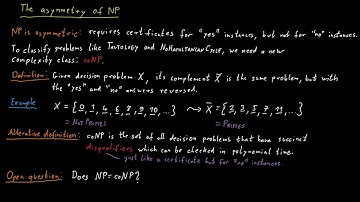 The asymmetry of NP
NP is asymmetric: requires certificates for "yes" instances, but not for "no" instances.
To classify problems like TAUTOLOGY and NOHAMILTONIANCYCLE, we need a new
complexity class: coNP.
Definition: Given decision problem X, its complement X̄ is the same problem, but with
the "yes" and "no" answers reversed.
Example X = {0, 1, 4, 6, 8, 9, 10, ...} ⇝ X̄ = {2, 3, 5, 7, 11, ...}
= NOTPRIMES = PRIMES
Alternative definition: coNP is the set of all decision problems that have succinct
disqualifiers which can be checked in polynomial time.
just like a certificate but for "no" instances.
Open question: Does NP=coNP?